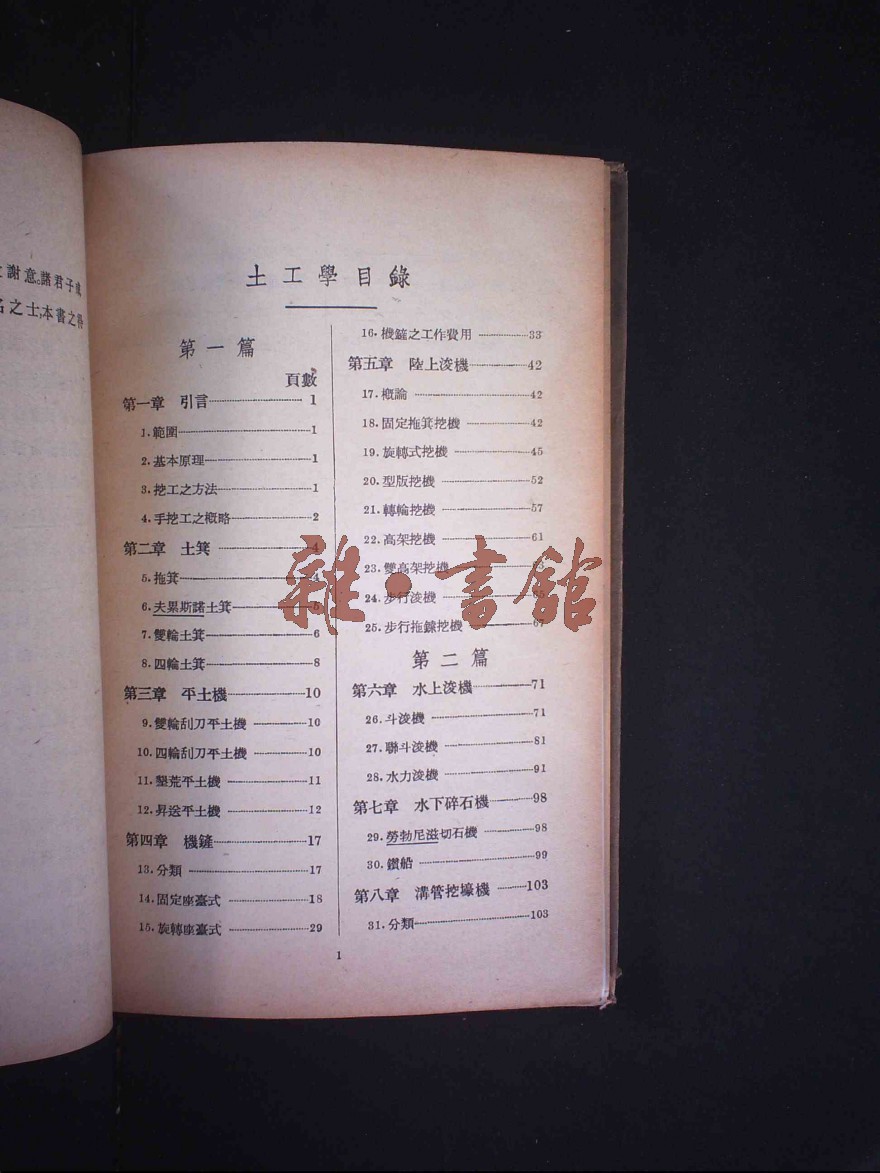 謝意。諸君子成
名之士,本書之
土工學目錄
第一篇
頁數
第一章 引言 1
1. 範圍 1
2. 基本原理 1
3. 挖工之方法 1
4. 手挖工之概略 2
第二章 土箕 4
5. 拖箕 4
6. 夫累斯諾土箕 5
7. 雙輪土箕 6
8. 四輪土箕 8
第三章 平土機 10
9. 雙輪刮刀平土機 10
10. 四輪刮刀平土機 10
11. 墾荒平土機 11
12. 昇送平土機 12
第四章 機鏟 17
13. 分類 17
14. 固定座臺式 18
15. 旋轉座臺式 29
16. 機鏟之工作費用 33
第五章 陸上浚機 42
17. 概論 42
18. 固定拖箕挖機 42
19. 旋轉式挖機 45
20. 型版挖機 52
21. 轉輪挖機 57
22. 高架挖機 61
23. 雙高架挖機 63
24. 步行浚機 65
25. 步行拖鍊挖機 67
第二篇
第六章 水上浚機 71
26. 斗浚機 71
27. 聯斗浚機 81
28. 水力浚機 91
第七章 水下碎石機 98
29. 勞勃尼滋切石機 98
30. 鑽船 99
第八章 溝管挖壕機 103
31. 分類 103
1
雜·書館